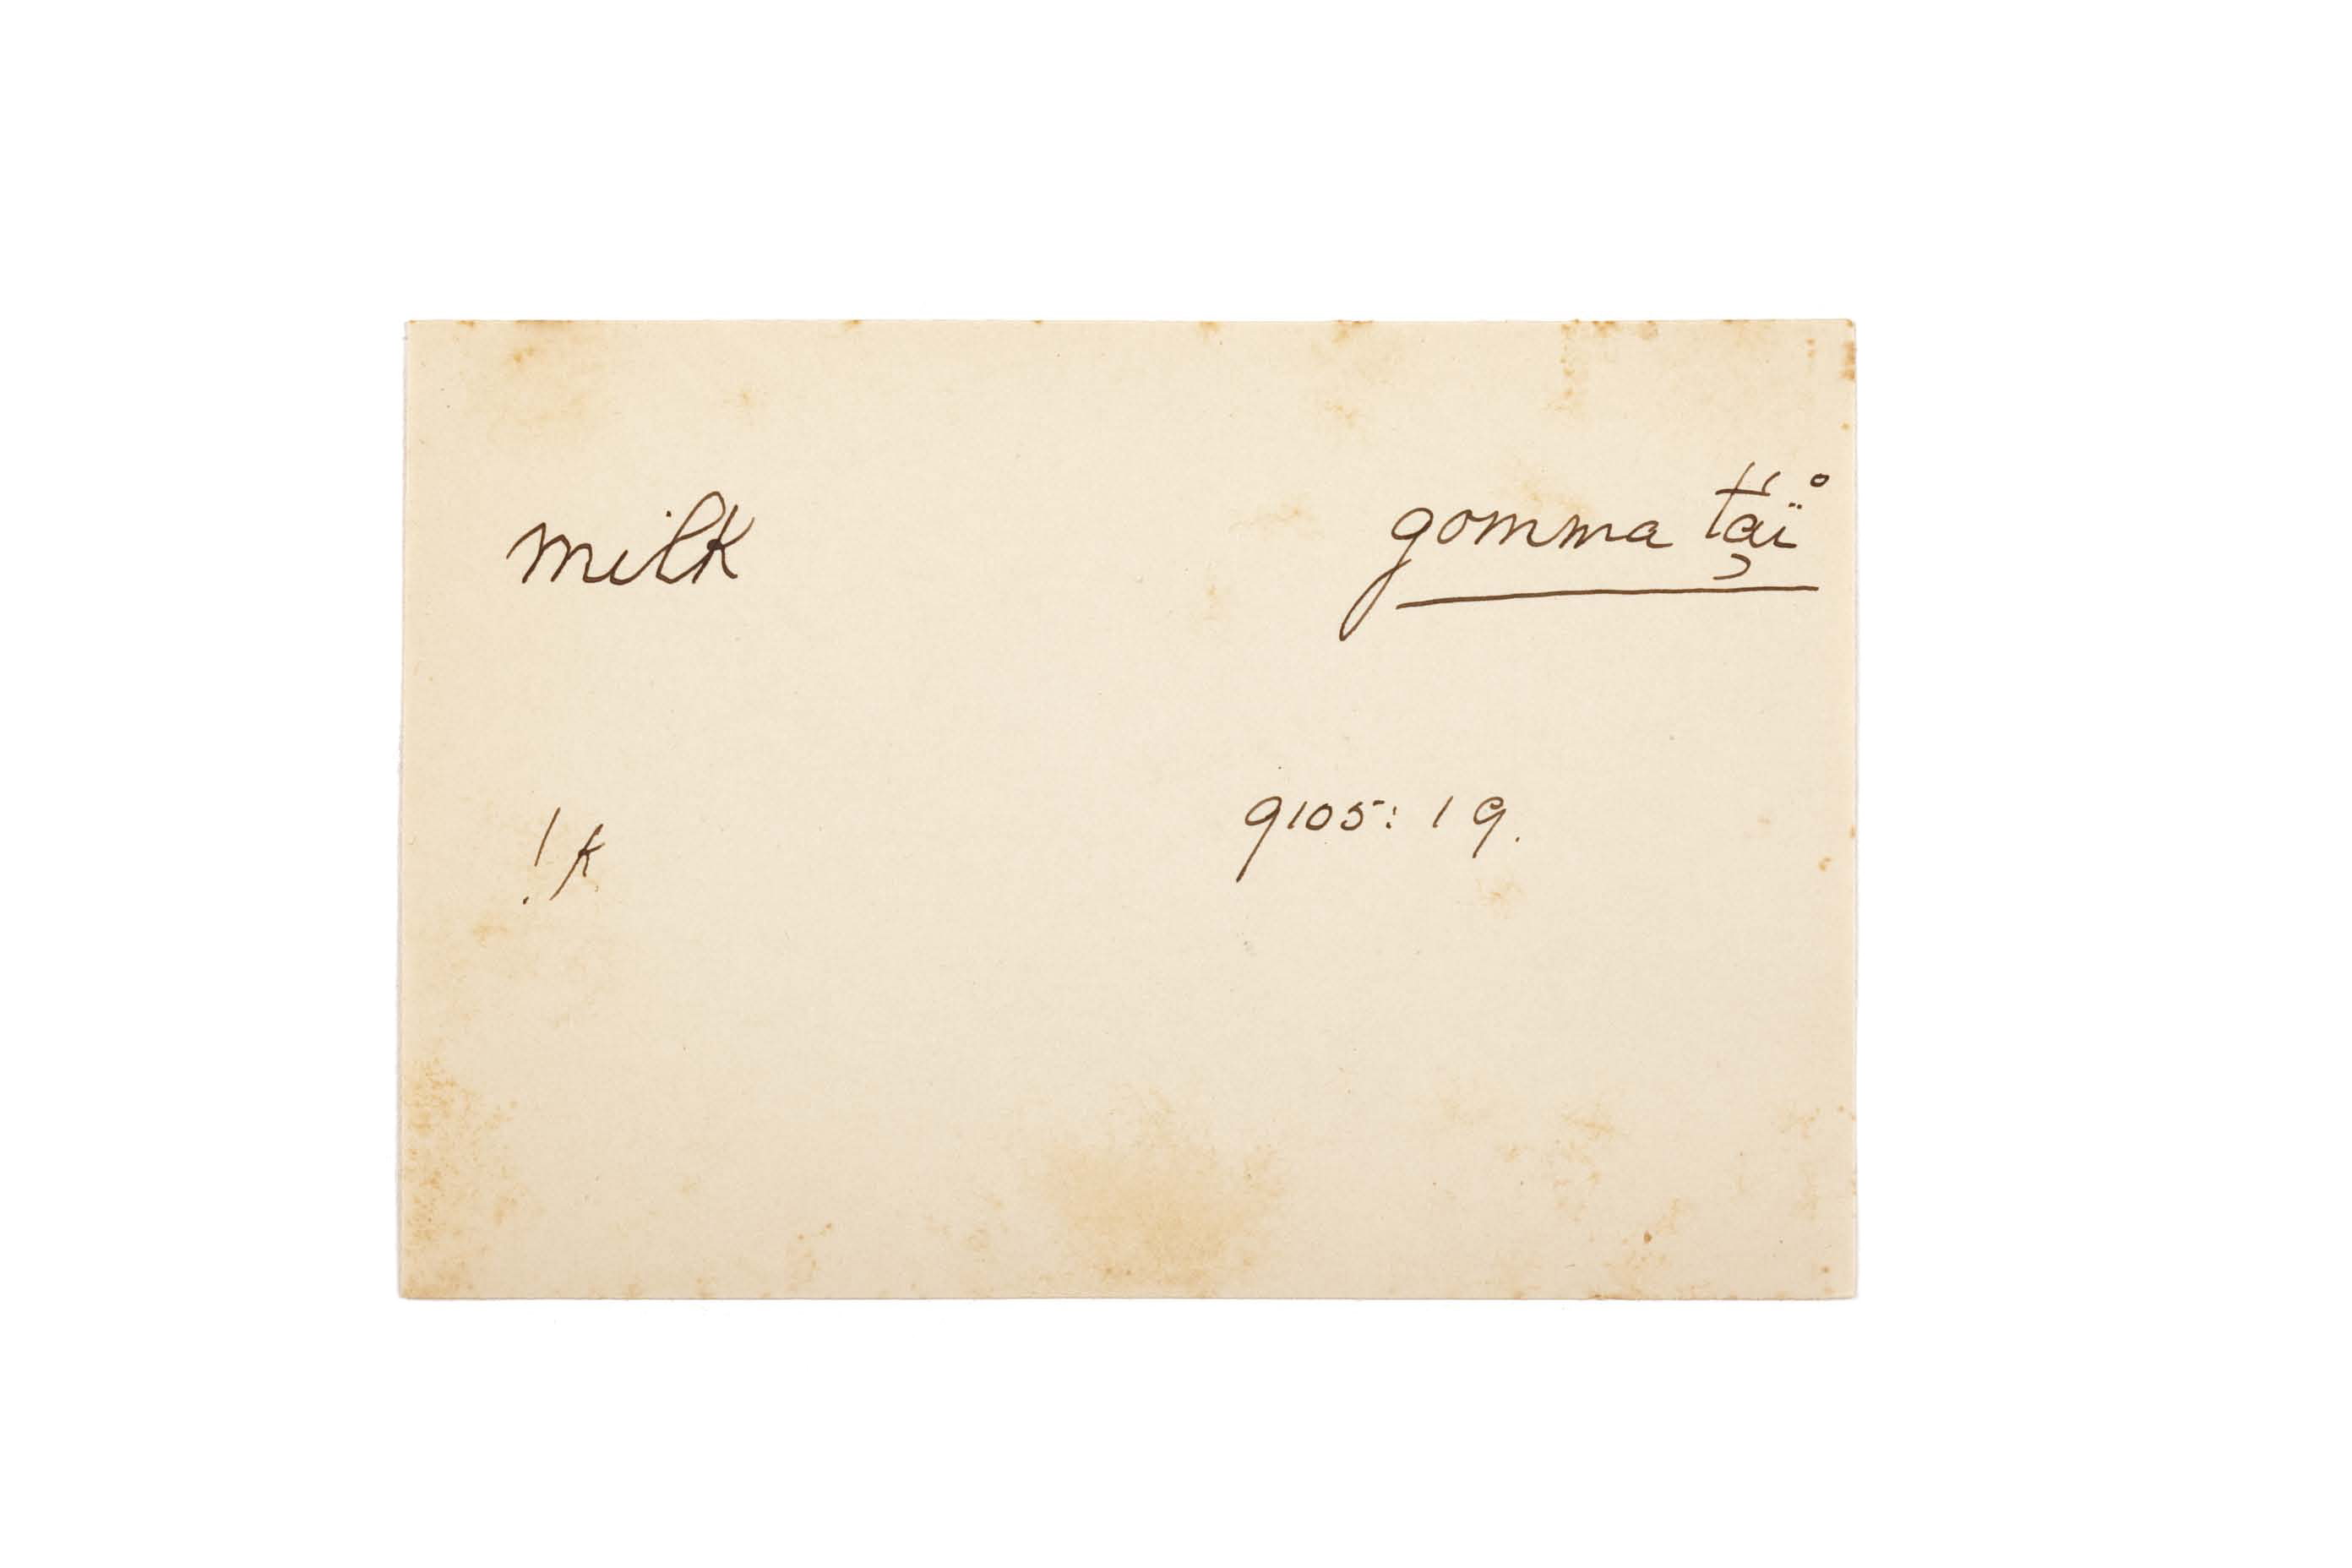 milk gomma tãı̈°
!k 9105: 19.